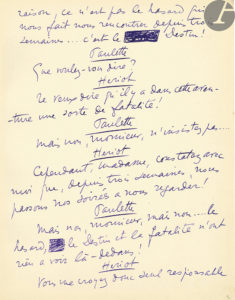 raison, ce n'est pas le hasard qui
nous fait nous rencontrer depuis trois
semaines.... c'est le destin!
Paulette
Que voulez-vous dire?
Heriot
Je veux dire qu'il y a dans cette aven-
ture une sorte de fatalité!
Paulette
Mais non, monsieur, n'insistez pas....
Heriot
Cependant, madame, constatez avec
moi que, depuis trois semaines, nous
passons nos soirées à nous regarder!
Paulette
Mais non, monsieur, mais non.... le
hasard, le destin et la fatalité n'ont
rien à voir là-dedans!
Heriot
Vous me croyez donc seul responsable